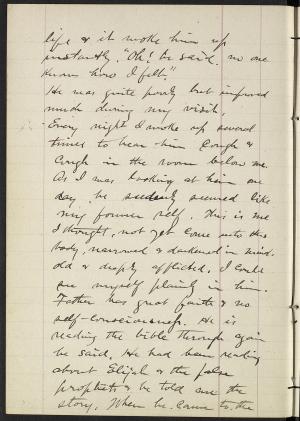 life & it woke him up
instantly. "Oh! he said, no one
knows how I felt."
He was quite poorly but improved
much during my visit.
Every night I woke up several
times to hear him Cough &
Cough in the room below me.
As I was looking at him one
day, he suddenly seemed like
my former self. This is me
I thought, not yet come into this
body, narrowed & darkened in mind,
old & deeply afflicted. I could
see myself plainly in him.
Father has great faith & no
self-consciousness. He is
reading the bible through again
he said, He had been reading
about Elijah & the false
prophets & he told me the
story. When he came to the